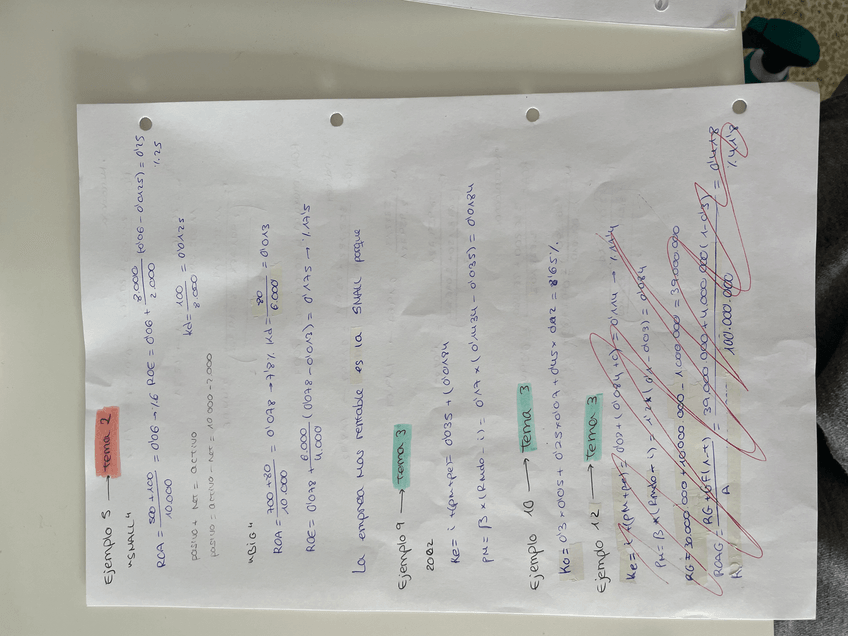 Ejemplo 5 → tema 2
"SMALL"
ROA = 500 + 100 / 10.000 = 0'06 → %6 ROE = 0'06 + 8.000 / 2.000 (0'06 - 0'0125) = 0'25
%25
pasivo + net = activo kd = 100 / 8.000 = 0'0125
pasivo = activo - net = 10.000 - 2.000
"BIG"
ROA = 700 + 80 / 10.000 = 0'078 → 7'8% kd = 80 / 6.000 = 0'013
ROE = 0'078 + 6.000 / 4.000 (0'078 - 0'013) = 0'175 → %17'5
La empresa mas rentable es la SMALL porque
Ejemplo 9 → tema 3
2002
Ke = i + (PM + PE) = 0'035 + (0'0184
PM = β × (Rmdo - i) = 0'17 × (0'1434 - 0'035) = 0'0184
Ejemplo 10 → Tema 3
Ko = 0'3 × 0'05 + 0'25 × 0'07 + 0'45 × 0'12 = 8'65%
Ejemplo 12 → Tema 3
Ke = i + (PM + PE) = 0'03 + (0'084 + 0) = 0'114 → %11'4
PM = β × (Rmdo - i) = 1'2 × (0'1 - 0'03) = 0'084
RG = 30.000.000 + 10.000.000 - 1.000.000 = 39.000.000
ROAG = RG + GF (1 - t) / A = 39.000.000 + 4.000.000 (1 - 0'3) / 100.000.000 = 0'418
%41'8
K